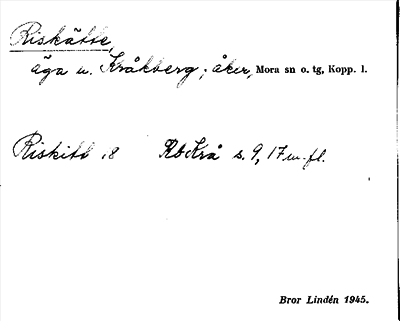 Riskätte,
äga u. Kråkberg; åker, Mora sn o. tg, Kopp. l.
Riskitt 18 RbKrå s. 9, 17 m. fl.
Bror Lindén 1945.